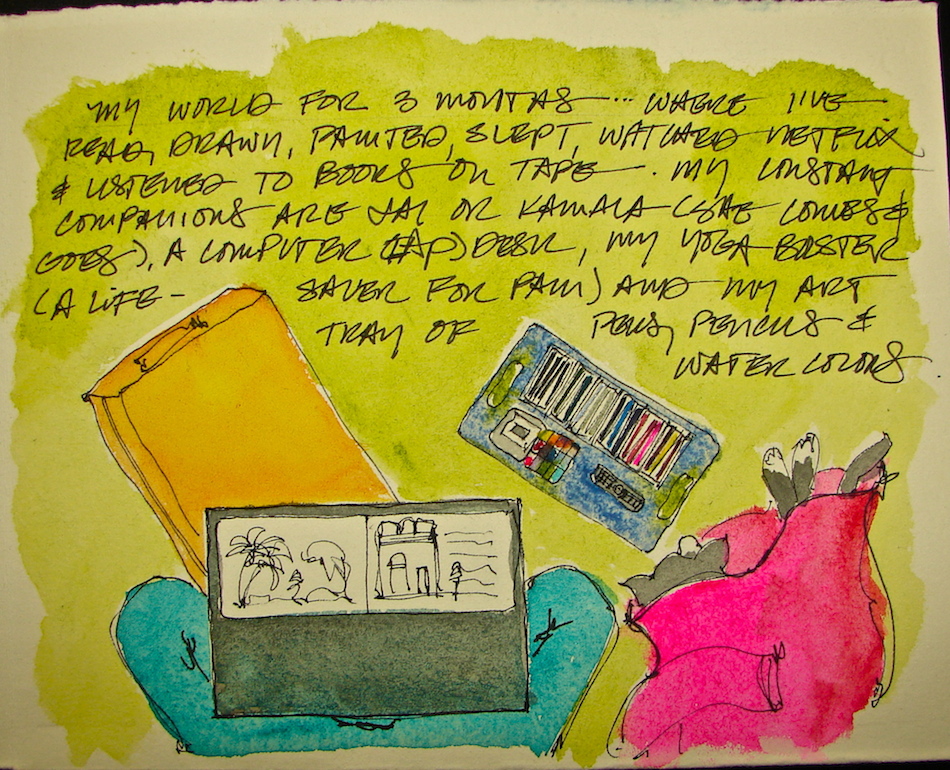 MY WORLD FOR 3 MONTHS ... WHERE I'VE
READ, DRAWN, PAINTED, SLEPT, WATCHED NETFLIX
& LISTENED TO BOOKS ON TAPE. MY CONSTANT
COMPANIONS ARE JAI OR KAMALA (SHE COMES &
GOES), A COMPUTER (LAP) DESK, MY YOGA BOLSTER
(A LIFE- SAVER FOR PAIN) AND MY ART
TRAY OF PENS, PENCILS &
WATER COLORS.